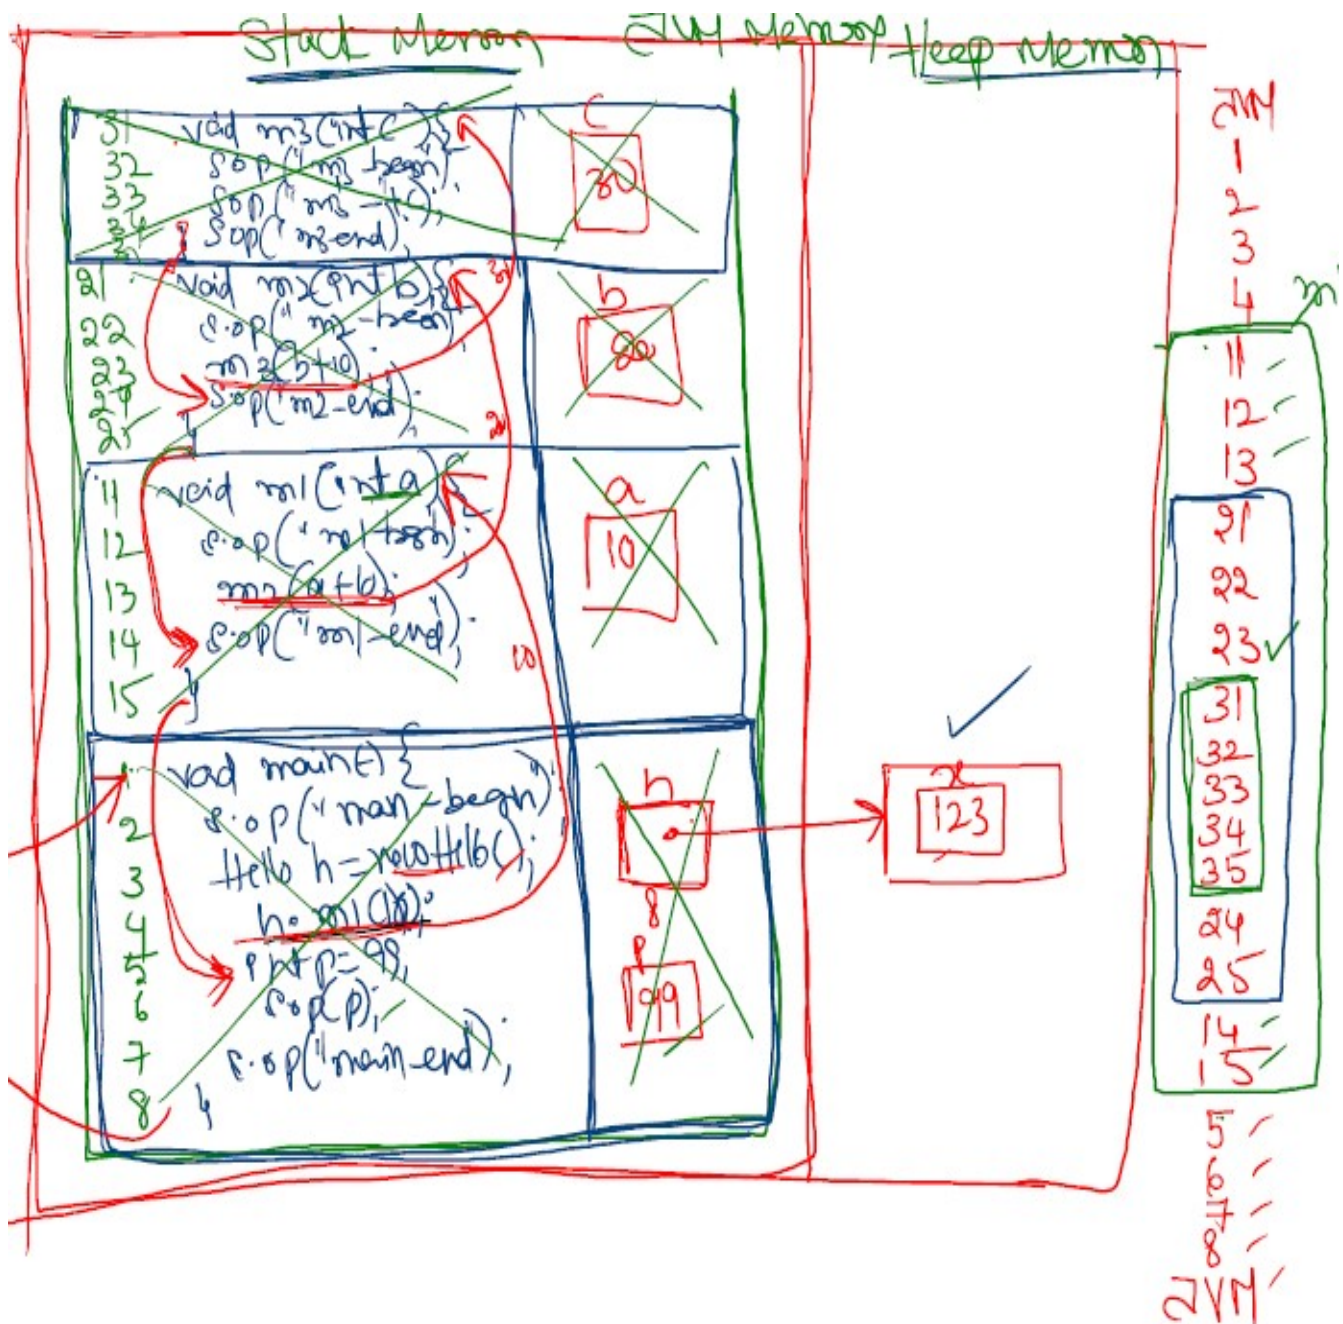 Stack Memory JVM Memory Heap Memory
31 void m3(int c){
32 S.o.p("m3-begin)
33 S.o.p("m3-"+c);
34 S.o.p("m3-end);
35 }
C
30
21 void m2(int b){
22 s.o.p("m2-begin"
23 m3(b+10);
24 s.o.p("m2-end);
25 }
b
20
30
11 void m1(int a){
12 s.o.p("m1-begin);
13 m2(a+10);
14 s.o.p("m1-end");
15 }
a
10
20
10
1 void main() {
2 s.o.p("main-begin");
3 Hello h = new Hello();
4 h.m1(10);
5 int p=99;
6 s.o.p(p);
7 s.o.p("main-end);
8 }
h
8
p
99
x
123
JVM
1
2
3
4
m1
11
12
13
21
22
23
31
32
33
34
35
24
25
14
15
5
6
7
8
JVM